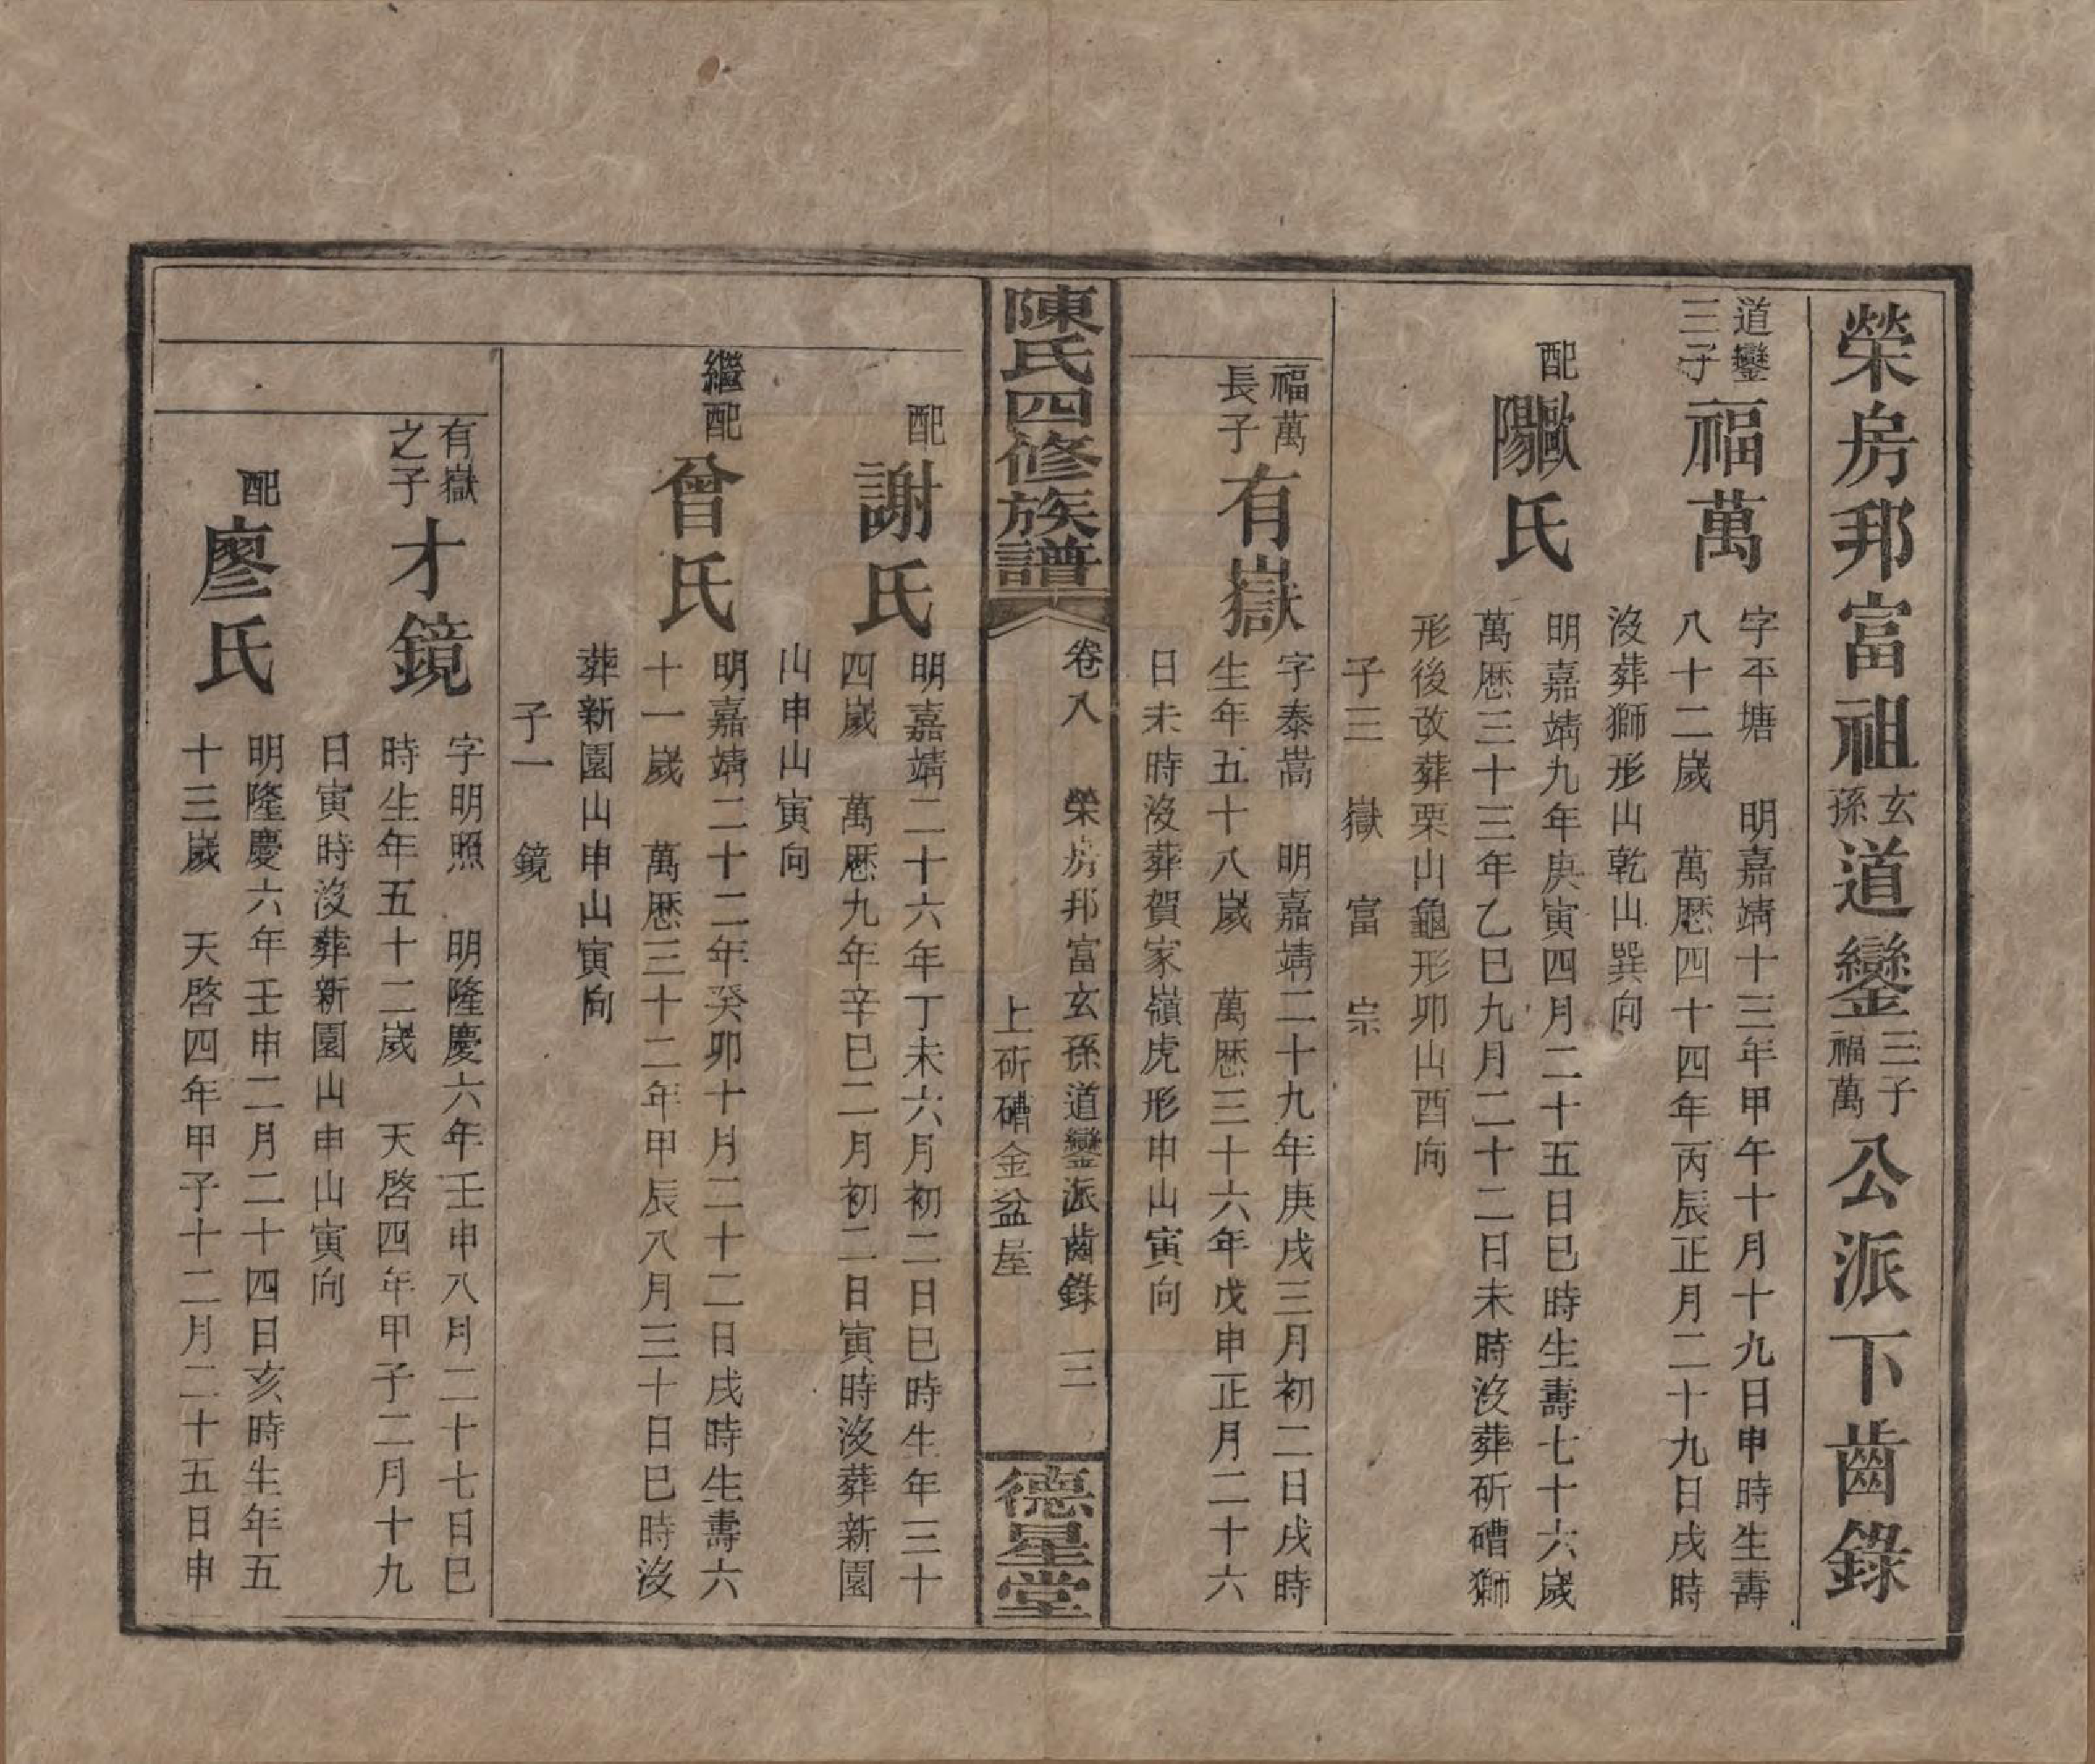 榮房邦富祖玄孫道鑾三子福萬公派下齒錄
道鑾三子福萬
字平塘　明嘉靖十三年甲午十月十九日申時生壽
八十二歲　萬歷四十四年丙辰正月二十九日戌時
沒葬獅形山乾山巽向
配歐陽氏
明嘉靖九年庚寅四月二十五日巳時生壽七十六歲
萬歷三十三年乙巳九月二十二日未時沒葬斫磄獅
形後改葬栗山龜形卯山酉向
子三　嶽　富　宗
福萬長子有嶽
字泰嵩　明嘉靖二十九年庚戌三月初二日戌時
生年五十八歲　萬歷三十六年戊申正月二十六
日未時沒葬賀家嶺虎形申山寅向
陳氏四修族譜
卷八　榮房邦富玄孫道鑾派齒錄　三
上斫磄金盆屋
德星堂
配謝氏
明嘉靖二十六年丁未六月初二日巳時生年三十
四歲　萬歷九年辛巳二月初二日寅時沒葬新園
山申山寅向
繼配曾氏
明嘉靖二十二年癸卯十月二十二日戌時生壽六
十一歲　萬歷三十二年甲辰八月三十日巳時沒
葬新園山申山寅向
子一　鏡
有嶽之子才鏡
字明照　明隆慶六年壬申八月二十七日巳
時生年五十二歲　天啓四年甲子二月十九
日寅時沒葬新園山申山寅向
配廖氏
明隆慶六年壬申二月二十四日亥時生年五
十三歲　天啓四年甲子十二月二十五日申